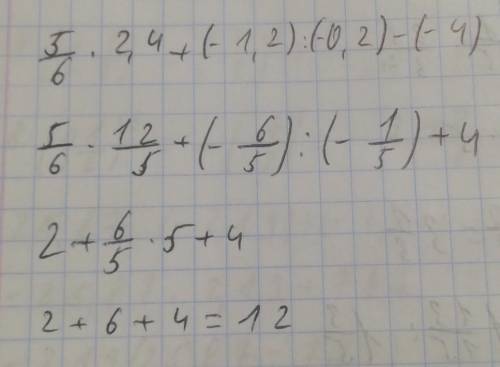 5/6 · 2,4 + (- 1,2) : (-0,2) - (- 4)
5/6 · 12/5 + (- 6/5) : (- 1/5) + 4
2 + 6/5 · 5 + 4
2 + 6 + 4 = 12